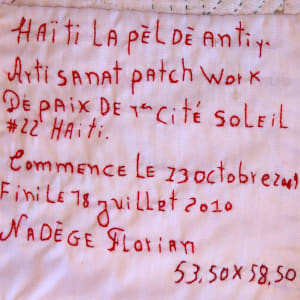 HAÏTI LA PÈL DÈ ANTIY.
Arti sanat patch work
DE PAIX DE CITÉ SOLEIL
#22 HAITI.
Commence Le 23 octobre 2009
Fini Le 18 juillet 2010
NADÈGE Florian
53,50 x 58,50